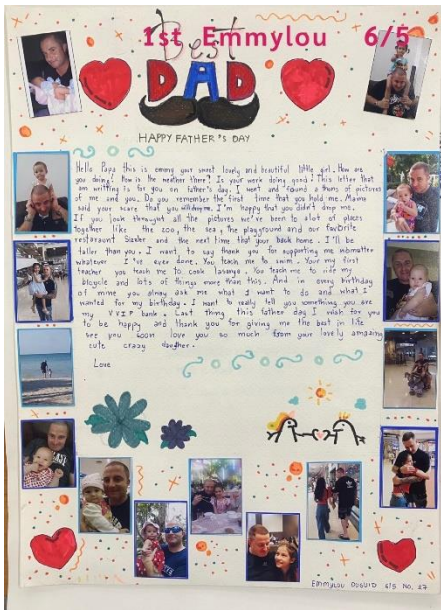 1st Emmylou 6/5
Best
DAD
HAPPY FATHER'S DAY
Hello Papa this is emmy your sweet lovely and beautiful little girl. How are
you doing? How is the neather there? Is your work doing good? This letter that
am writting is for you on father's day. I went and found a thums of pictures
of me and you. Do you remember the first time that you hold me. Mama
said your scare that you I'm happy that you didn't drop me.
If you look throught all the pictures we've been to alot of places
together like the zoo, the sea, the playground and our favorite
restaraunt Sizzler and the next time that your back home I'll be
taller than you. I want to say thank you for supporting me no matter
whatever I have ever done. You teach me to swim. Your my first
teacher you teach me to cook lasange. You teach me to ride my
bicycle and lots of things more than this. And in every birthday
of mine you alway ask me what I want to do and what I
wanted for my birthday. I want to really tell you something you are
my VVIP bank. Last thing this father day I wish for you
to be happy and thank you for giving me the best in life
see you soon love you so much from your lovely amazing
cute crazy daughter.
Love
EMMYLOU DUGUID 6/5 No. 27